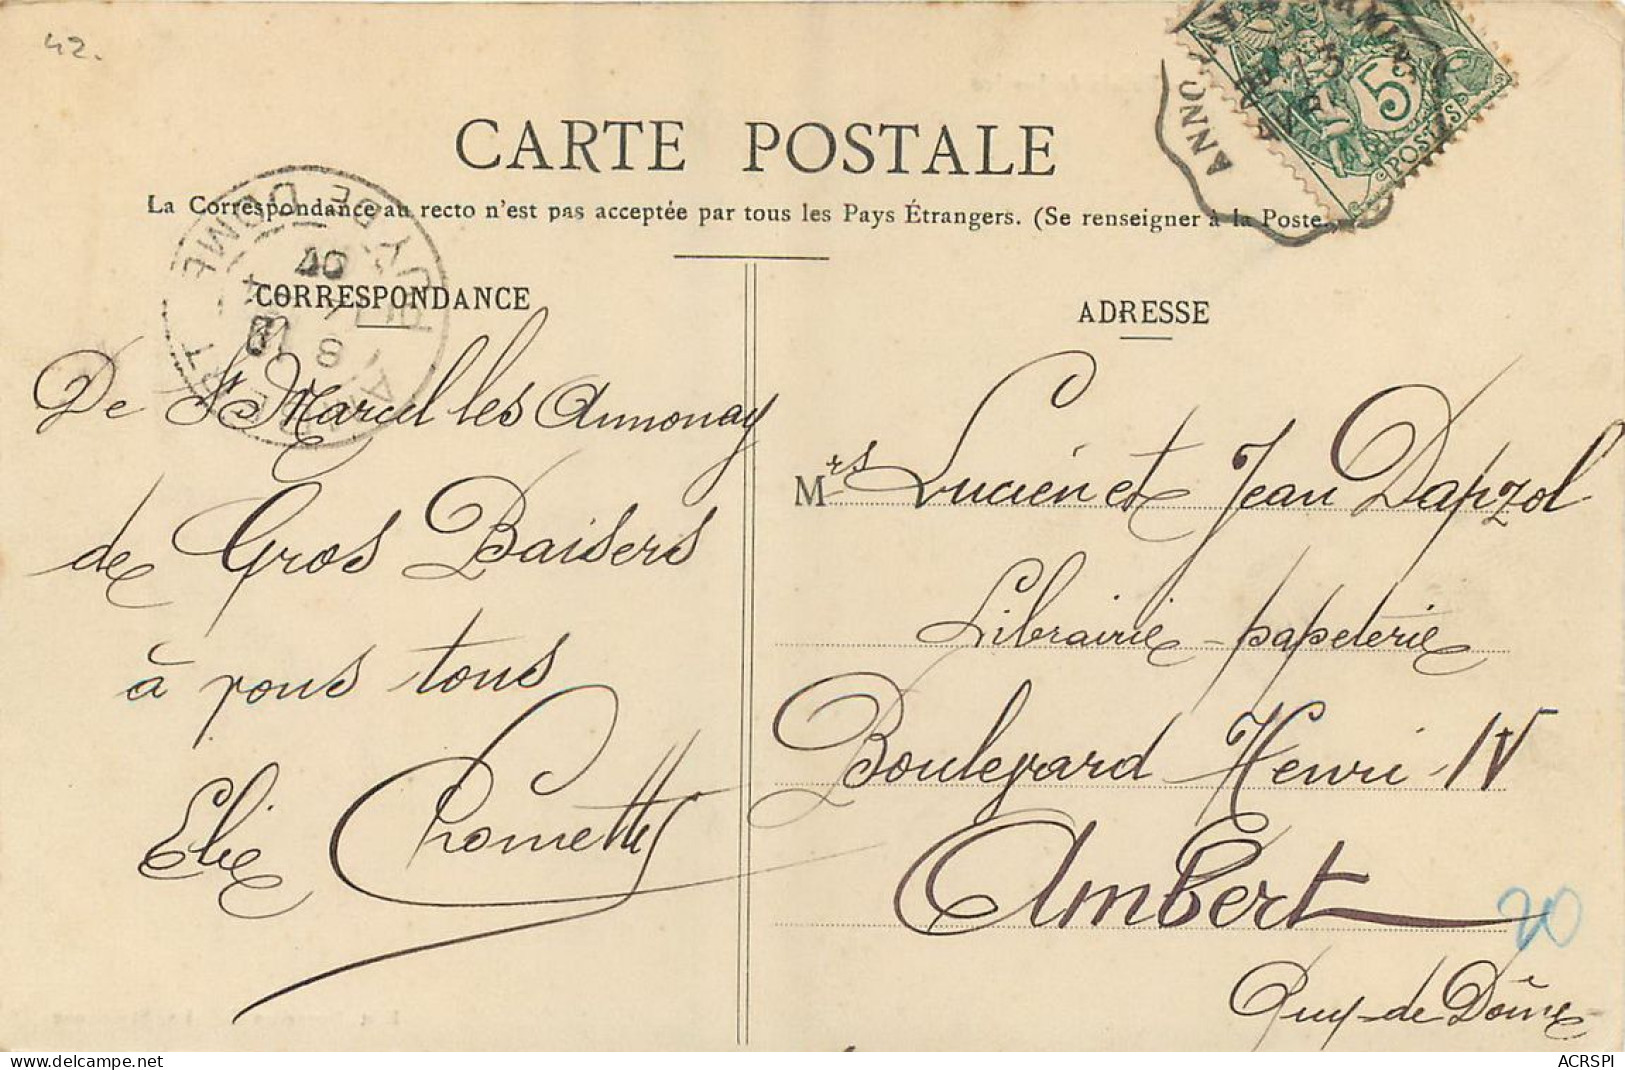 42.
CARTE POSTALE
La Correspondance au recto n'est pas acceptée par tous les Pays Étrangers. (Se renseigner à la Poste.)
CORRESPONDANCE
De St Marcel les Annonay
de Gros Baisers
à vous tous
Elie Chomette
ADRESSE
Mrs Lucien et Jean Dapzol
Librairie-papeterie
Boulevard Henri IV
Ambert
Puy-de-Dôme
20
5
POSTES
AMBERT
PUY-DE-DOME
delcampe.net
ACRSPI